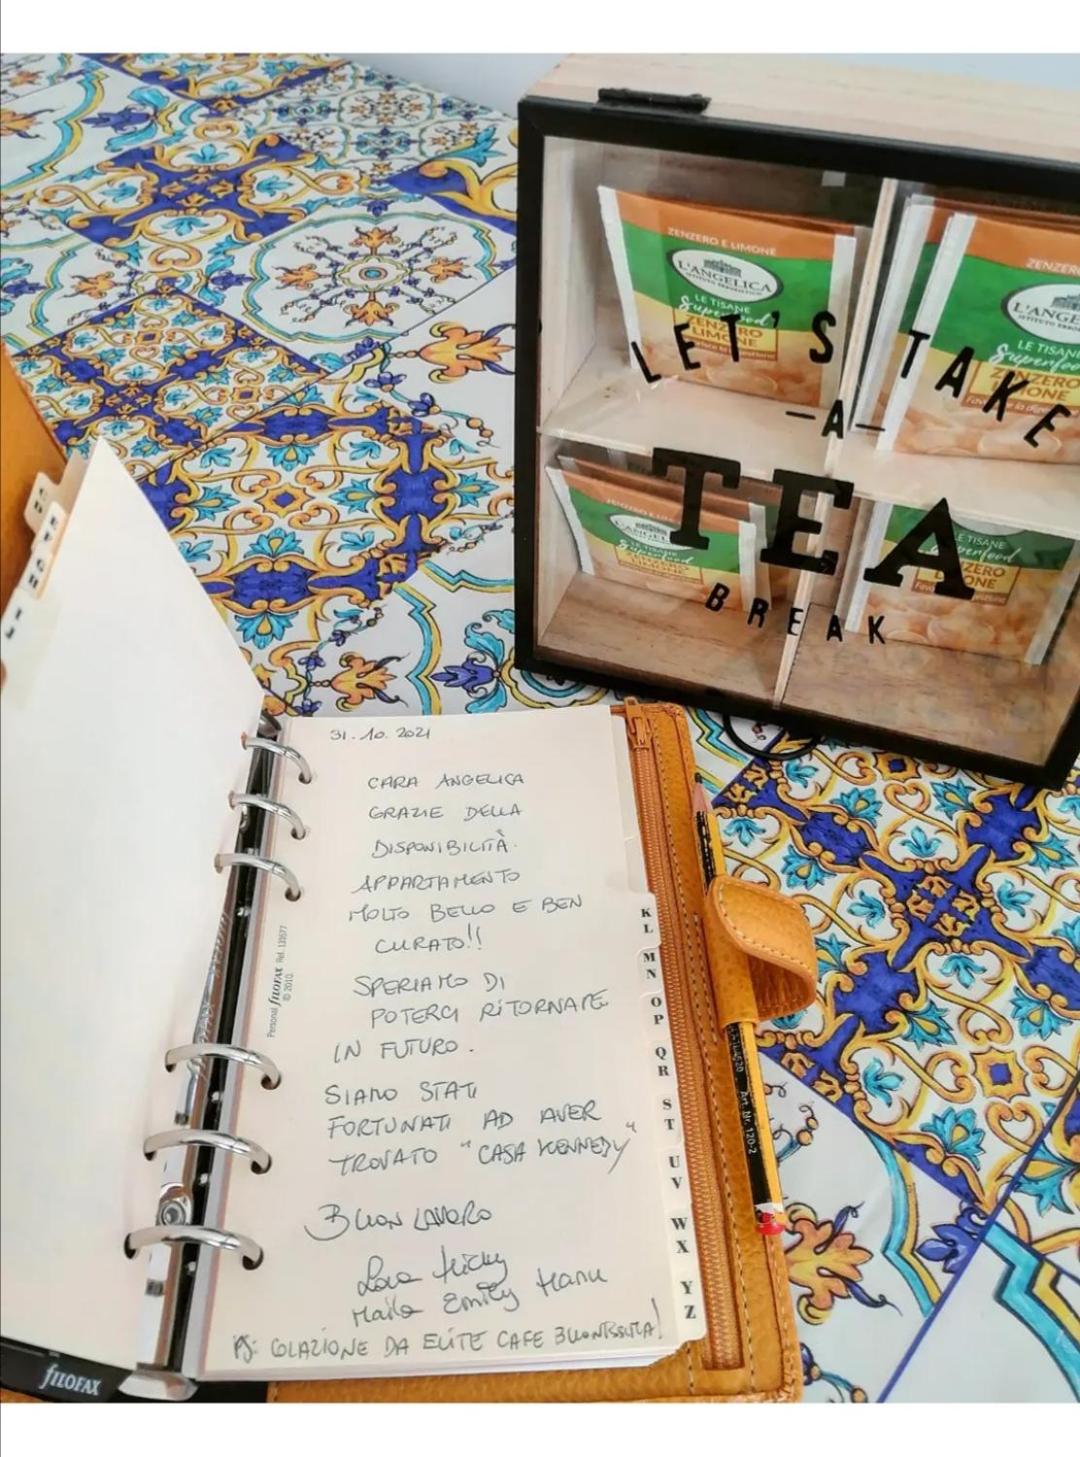 ZENZERO E LIMONE
L'ANGELICA
ISTITUTO ERBORISTICO
LE TISANE
Superfood
ZENZERO
LIMONE
ZENZERO
L'ANGE
ISTITUTO ERBO
LE TISANE
Superfood
ZENZERO
LIMONE
L'ANGELICA
Superfood
LE TISANE
Superfood
ZENZERO
LIMONE
LET'S TAKE
-A-
TEA
BREAK
31.10.2021
CARA ANGELICA
GRAZIE DELLA
DISPONIBILITÀ.
APPARTAMENTO
MOLTO BELLO E BEN
CURATO!!
SPERIAMO DI
POTERCI RITORNARE
IN FUTURO.
SIAMO STATI
FORTUNATI AD AVER
TROVATO "CASA KENNEDY"
BUON LAVORO
Emily Manu
PS: COLAZIONE DA ELITE CAFE BUONISSIMA!
Personal FILOFAX Ref. 131677
© 2010.
KL
MN
OP
QR
ST
UV
WX
YZ
Art. Nr. 120-2
FILOFAX